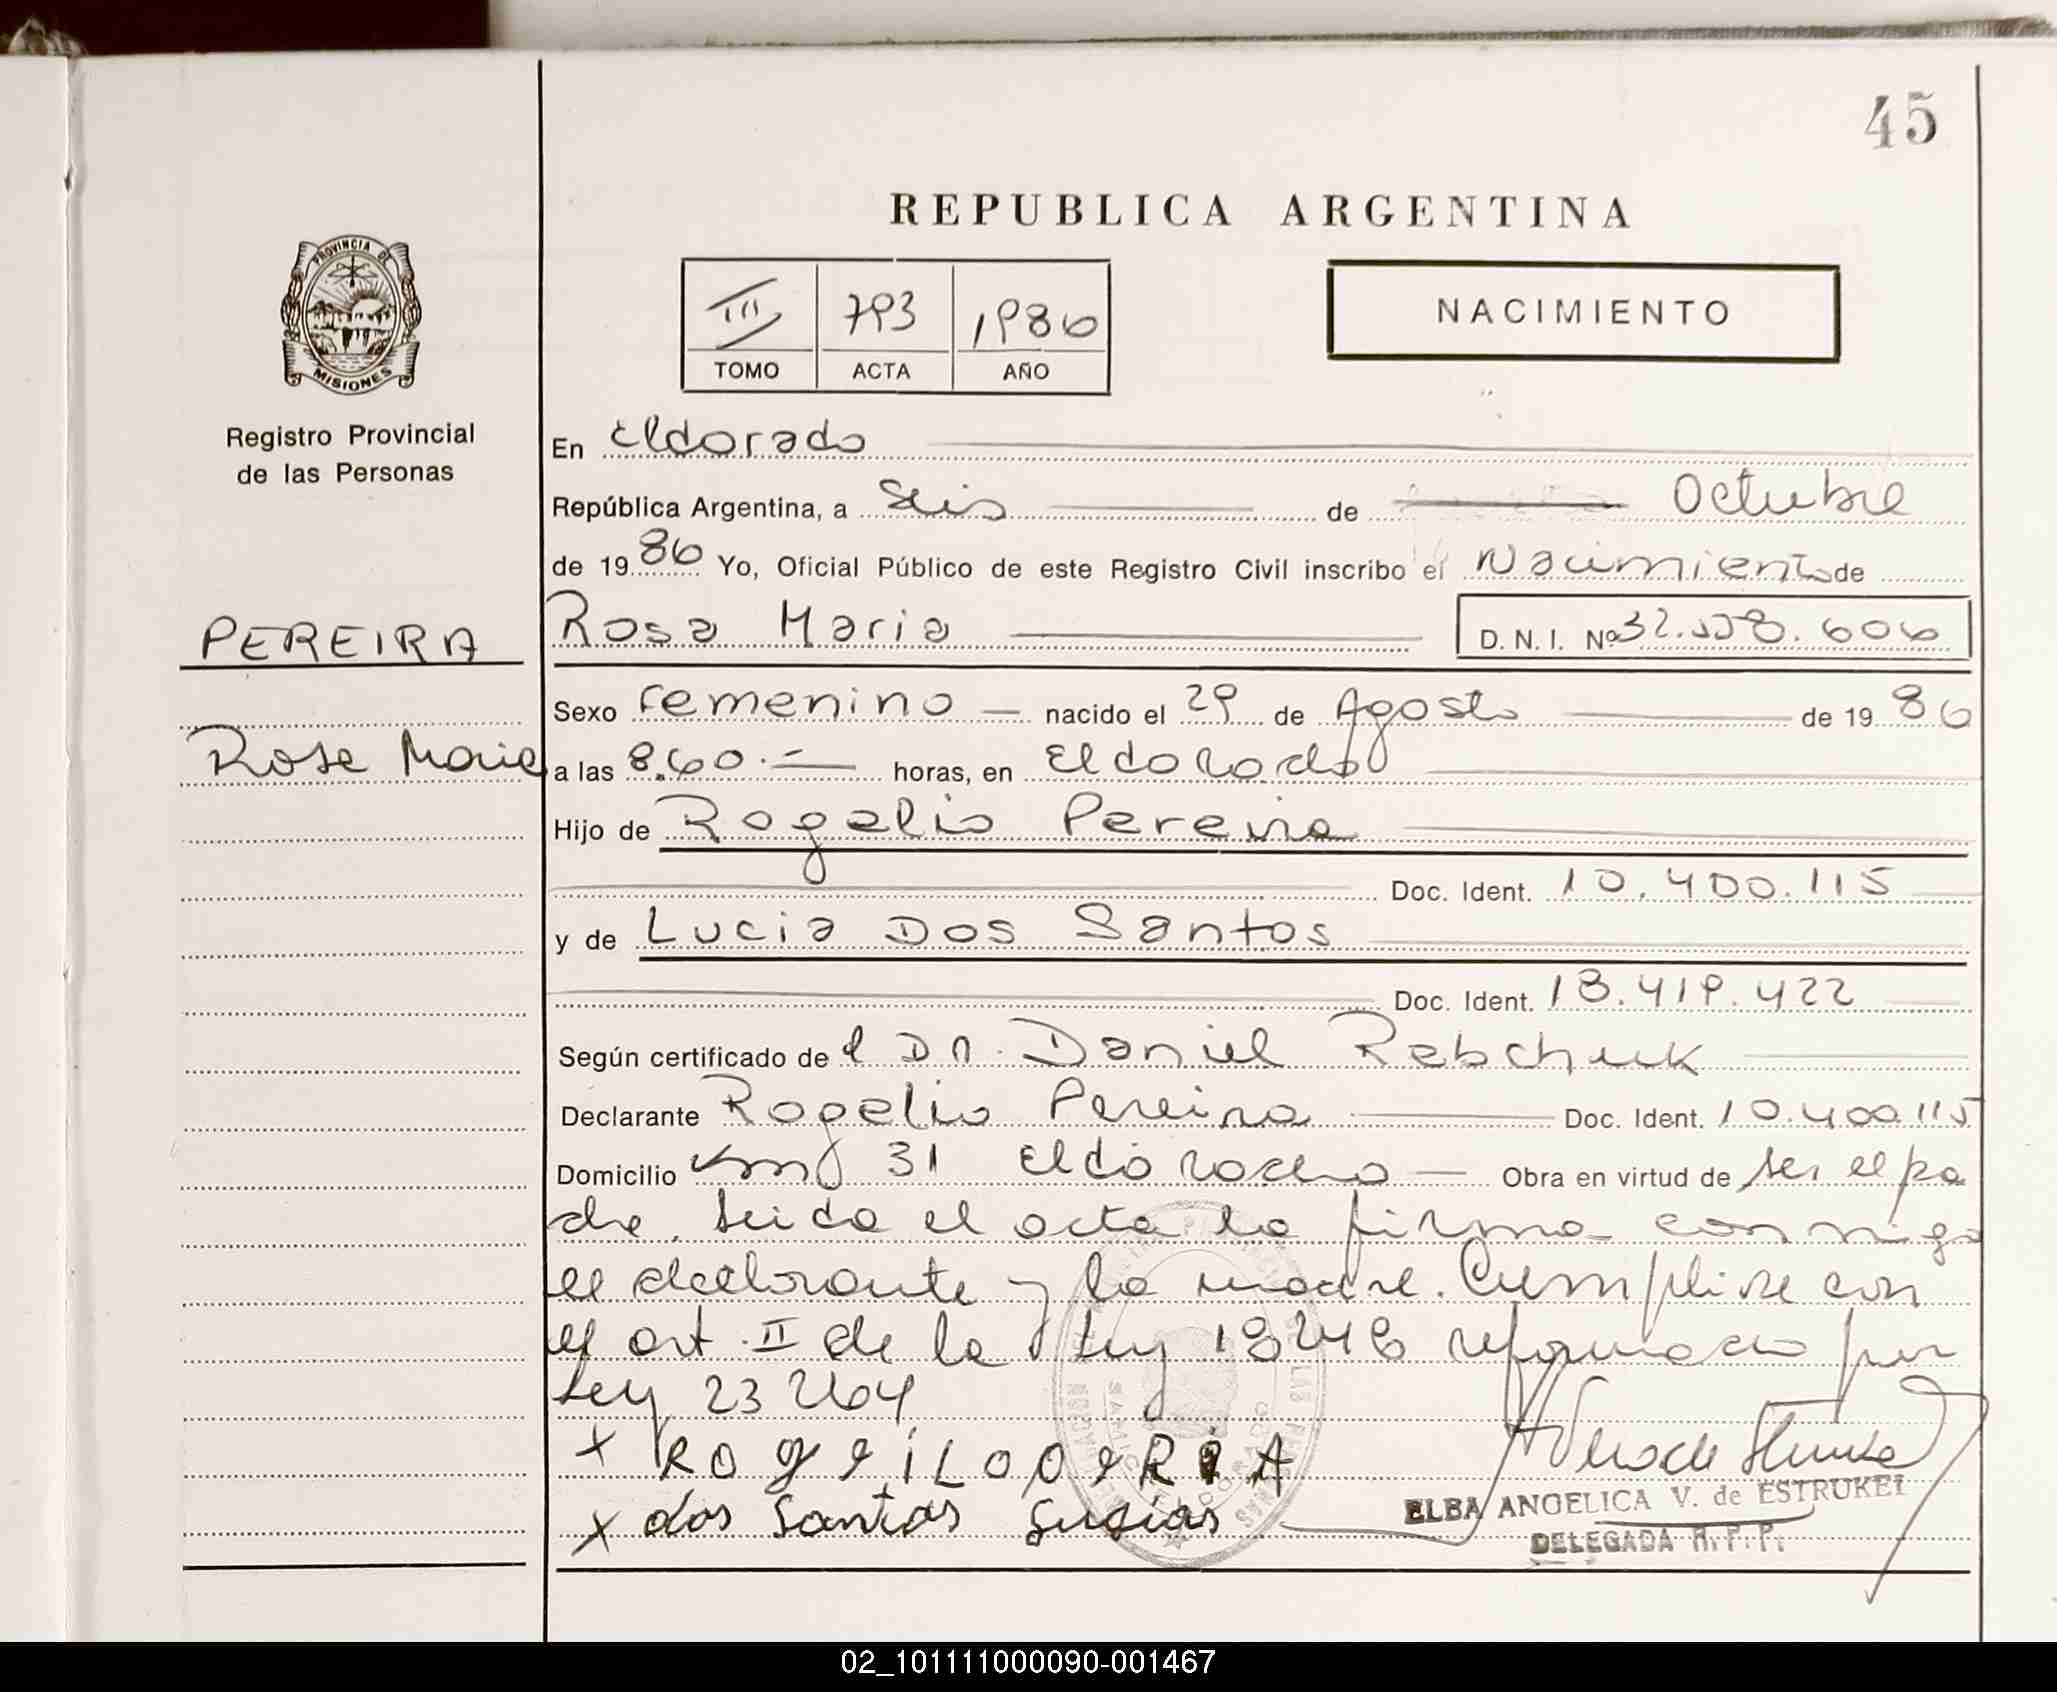 45
REPUBLICA ARGENTINA
PROVINCIA DE
MISIONES
III 793 1986
TOMO ACTA AÑO
NACIMIENTO
Registro Provincial
de las Personas
En Eldorado
República Argentina, a Seis de Octubre
de 1986 Yo, Oficial Público de este Registro Civil inscribo el Nacimiento de
PEREIRA
Rosa Maria D. N. I. Nº 32.558.606
Sexo Femenino nacido el 29 de Agosto de 1986
Rosa Maria
a las 8.40.- horas, en Eldorado
Hijo de Rogelio Pereira
Doc. Ident. 10.400.115
y de Lucia Dos Santos
Doc. Ident. 18.419.422
Según certificado de el Dr. Daniel Rebchuk
Declarante Rogelio Pereira Doc. Ident. 10.400.115
Domicilio km 31 Eldorado Obra en virtud de ser el pa
dre. Leida el acta la firma conmigo
el declarante y la madre. Cumplise con
el art. II de la Ley 18248 reformado por
Ley 23264
x
x dos Santos
ELBA ANGELICA V. de ESTRUKEL
DELEGADA R. P. P.
02_101111000090-001467